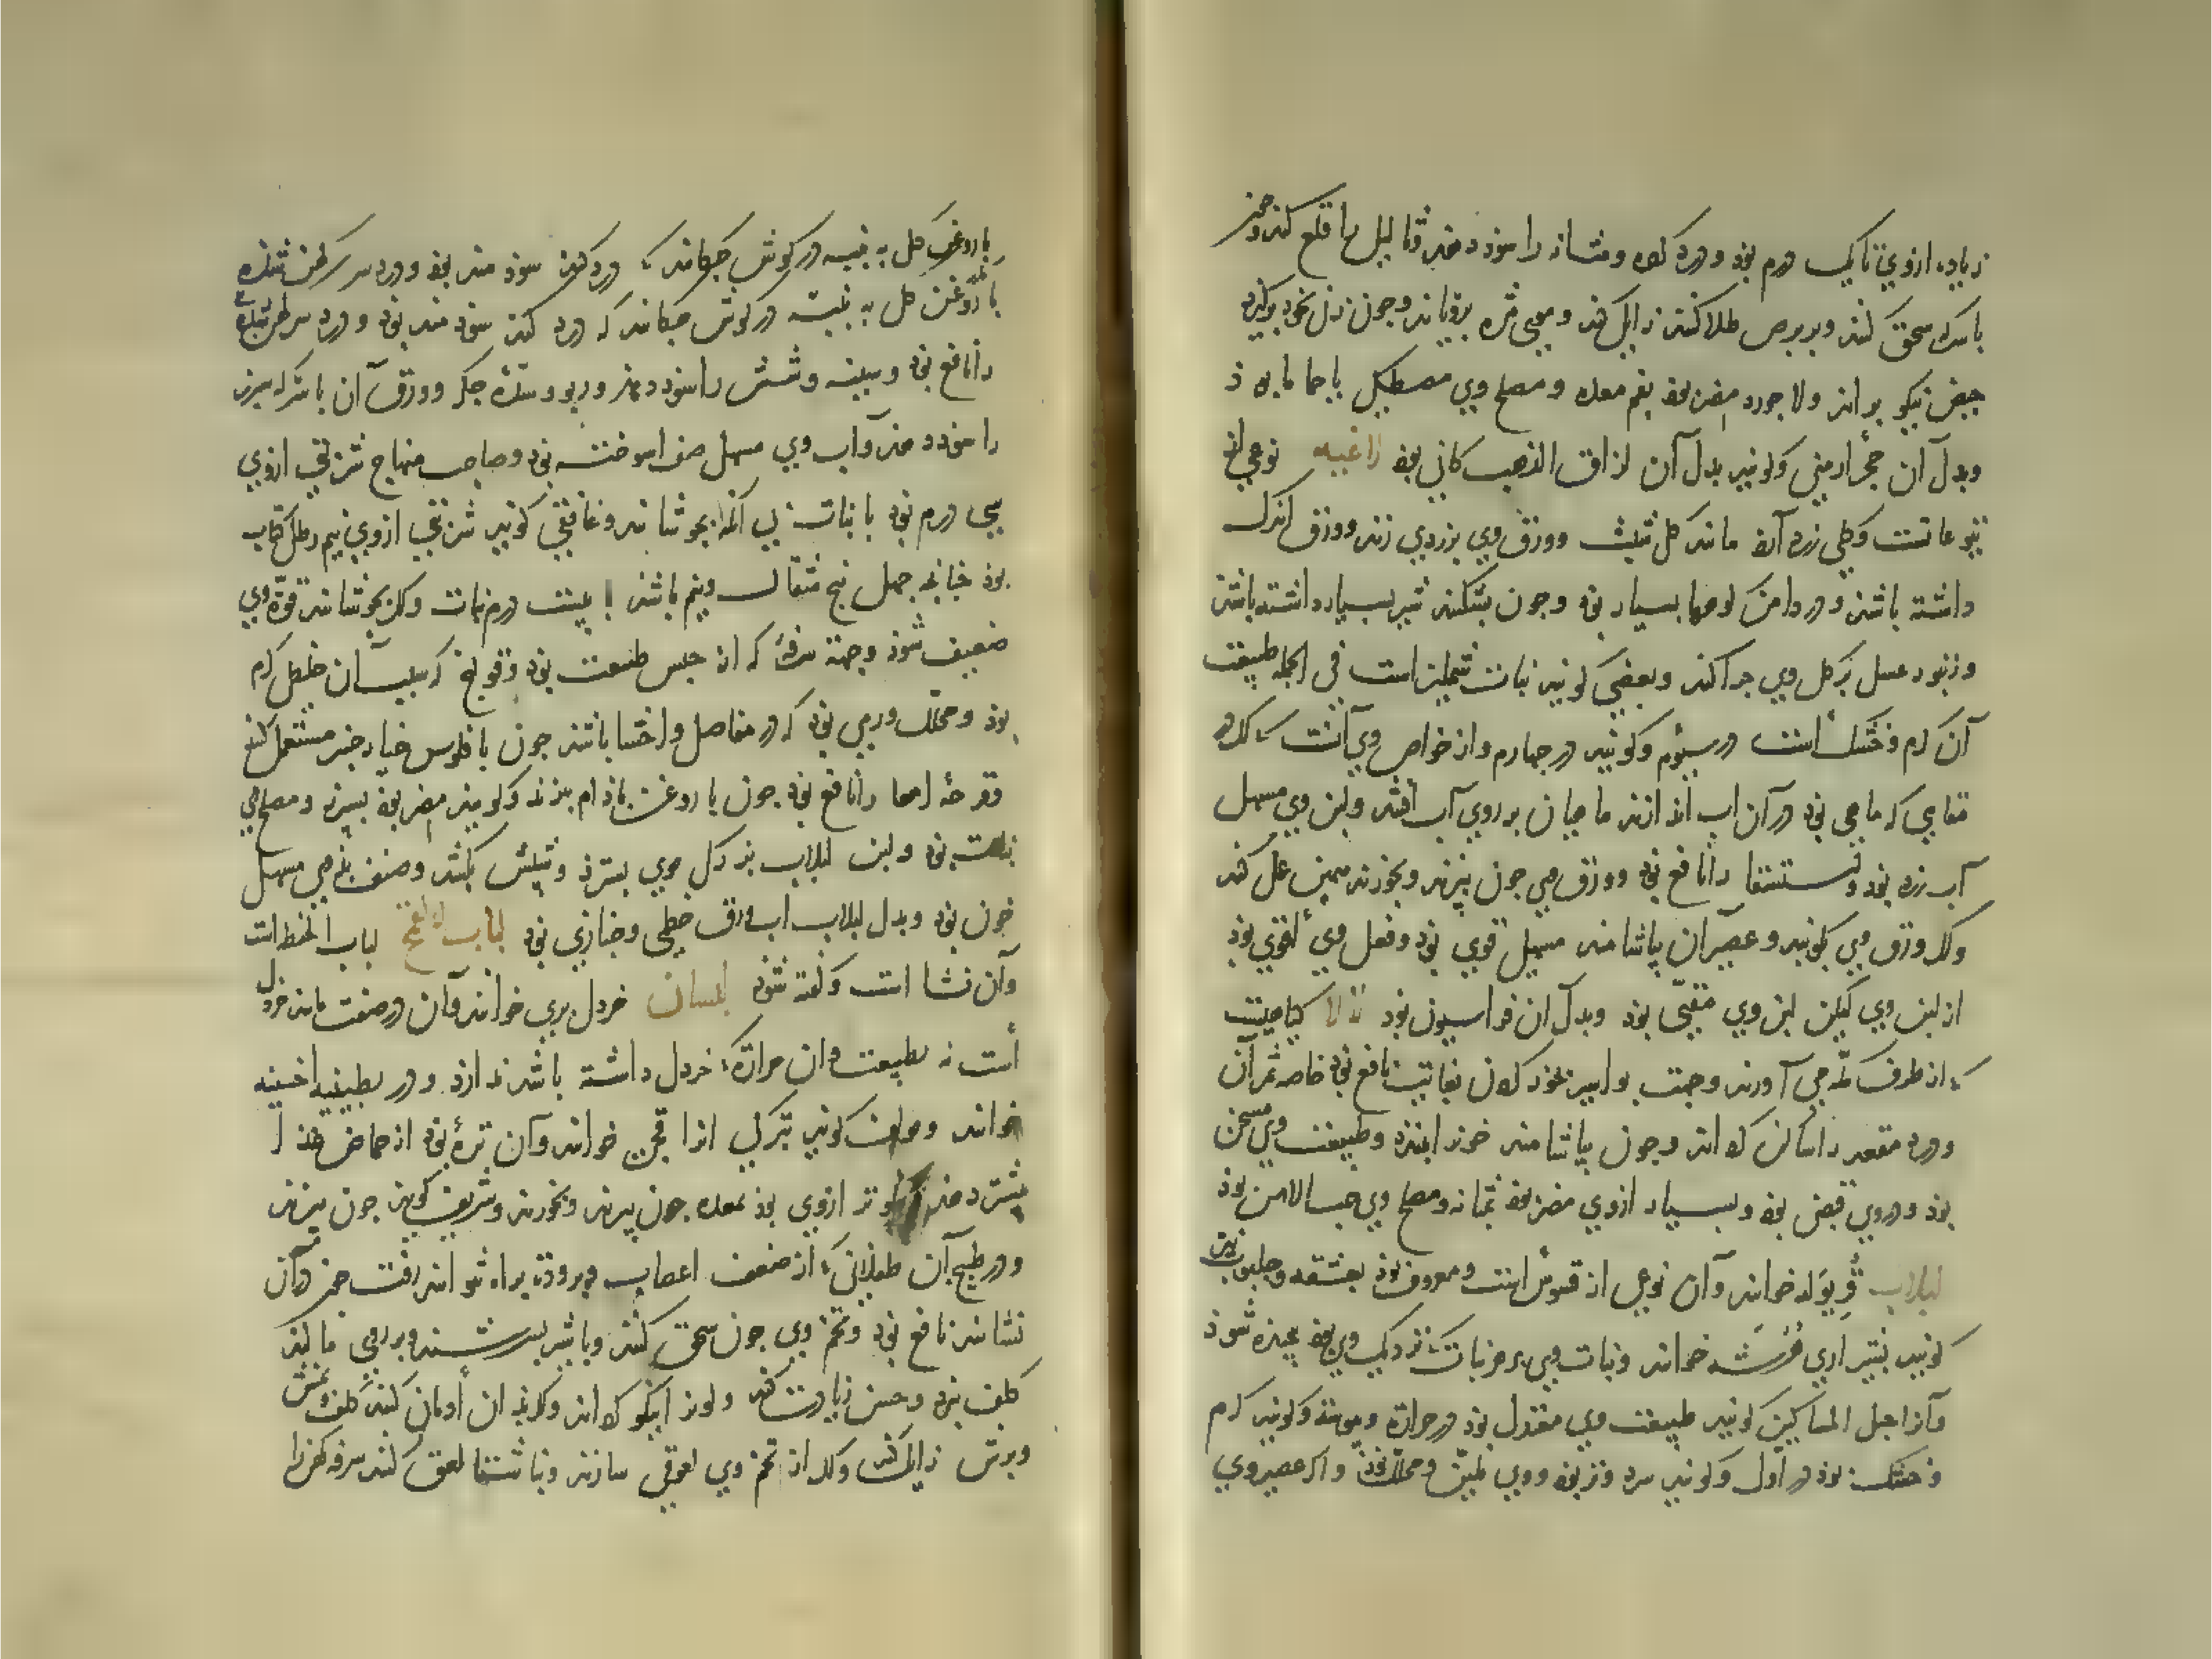 زیاده ازوي تا یک درم بود ودرد کرده ومثانه را سود دهد وثالیل را قلع کند وچون
با سرکه سحق کنند وبر برص طلا کنند زایل کند وموي مژه برویاند وچون زن بخود برگیرد
حیض نیکو براند ولاجورد مضر بود بفم معده ومصلح وي مصطکي با حماما بود
وبدل آن حجر ارمني وگویند بدل آن لزاق الذهب کاني بود لاغیه نوعي از
یتوعاتست وگلي زرد آرد مانند گل شبث وورق وي بزردي زند وورق اندک
داشته باشد ودر دامن کوهها بسیار بود وچون بشکنند شیر بسیار داشته باشد
وزنبور عسل بر گل وي چرا کند وبعضي گویند نبات شملیز است في الجمله طبیعت
آن گرم وخشک است در سیوم وگویند در چهارم واز خواص وي آنست که اگر در
مقامي که ماهي بود در آن اب اندازند ماهیان بر روي آب افتند ولبن وي مسهل
آب زرد بود واستسقا را نافع بود وورق وي چون بپزند وبخورند همین عمل کند
واگر ورق وي بکوبند وعصیر آن بیاشامند مسهل قوي بود وفعل وي أقوي بود
از لبن وي لیکن لبن وي مقیّي بود وبدل آن فراسیون بود لالا گیاهیست
که از طرف مکه مي آورند وجهت بواسیر بخور کردن بغایت نافع بود خاصه ثمر آن
ودرد مقعد را ساکن گرداند وچون بیاشامند خون ببندد وطبیعت وي مسخن
بود ودروي قبض بود وبسیار ازوي مضر بود بمثانه ومصلح وي حب الاس بود
لبلاب خوانند وآن نوعي از قسوس است ومعروف بود بعشقه وجلبوب نیز
گویند بشیرازي خوانند ونبات وي بر هر نبات که نزدیک وي بود پیچیده شود
وآنرا حبل المساکین گویند طبیعت وي معتدل بود در حرارة ویبوسة وگویند گرم
وخشک بود در اول وگویند سرد وتر بود ووي ملیّن ومحلل بود واگر عصیر وي
با روغن گل به پنبه در گوش چکانند که درد کند سود مند بود ودرد سر کهن شده
با روغن گل به پنبه در گوش چکانند که درد کند سود مند بود ودرد سر کهن شده
را نافع بود وسینه وشش را سود دهد وربو وسدّه جگر وورق آن با سرکه سپرز
را سود دهد وآب وي مسهل صفرا سوخته بود وصاحب منهاج شربتي ازوي
سي درم بود با نبات بي آنکه بجوشانند وغافقي گوید شربتي ازوي نیم رطل تا
بود چنانچه چهل پنج مثقال ونیم باشد با بیست درم نبات واگر بجوشانند قوّة وي
ضعیف شود وجهة سرفه که از حبس طبیعت بود وقولنج که سبب آن خلطي گرم
بود ومحلل ورمي بود که در مفاصل واحشا باشد چون با فلوس خیارچنبر مستعمل کنند
وقرحهٔ امعا را نافع بود چون با روغن بادام بپزند وگویند مضر بود بسپرز ومصلح وي
نبات بود ولبن لبلاب بزرگ موي بسترد وشپش بکشد وصنف بزرگ وي مسهل
خون بود وبدل لبلاب اب ورق خطمي وخبازي بود لباب القمح لباب الحنطه است
وآن نشا است وگفته شود لبسان خردل بري خوانند وآن در صفت مانند خردل
أست نه بطبیعت وآن حرارة که خردل داشته باشد ندارد ودر بطبیعت
خوانند ومولف گوید بترکي آنرا قچي خوانند وآن ترهٔ بود از حماض غذا
بیشتر دهد ازوي بود بمعده چون بپزند وبخورند وشریف گوید چون بپزند
ودر طبیخ آن طفلاني که از ضعف اعصاب وبرودة براه نتوانند رفت چون در آن
نشانند نافع بود وتخم وي چون سحق کنند وبا شیر بسرشند وبر روي مالند
کلف ببرد وحسن زیادت کند ولون نیکو گرداند واگر بدان أدمان کنند کلف ونمش
وبرش زایل کند واگر از تخم وي لعوقي سازند وناشتا لعق کنند سرفه کهن را